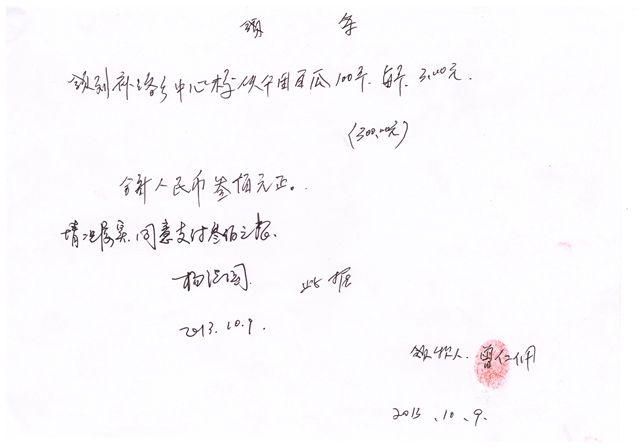 领条
领到补洛乡中心校伙午用南瓜100斤. 每斤. 3.00元.
(300.00元)
合计人民币叁佰元正。
情况属实. 同意支付叁佰元整.
此据
2013.10.9.
领款人. 曾仁明
2013.10.9.